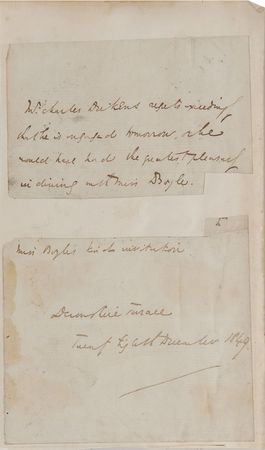 Mr. Charles Dickens regrets exceedingly
that he is engaged tomorrow, or he
would have had the greatest pleasure
in dining with Miss Boyle.
5
Miss Boyle's kind invitation
Devonshire Terrace
Twenty Eighth December 1849.